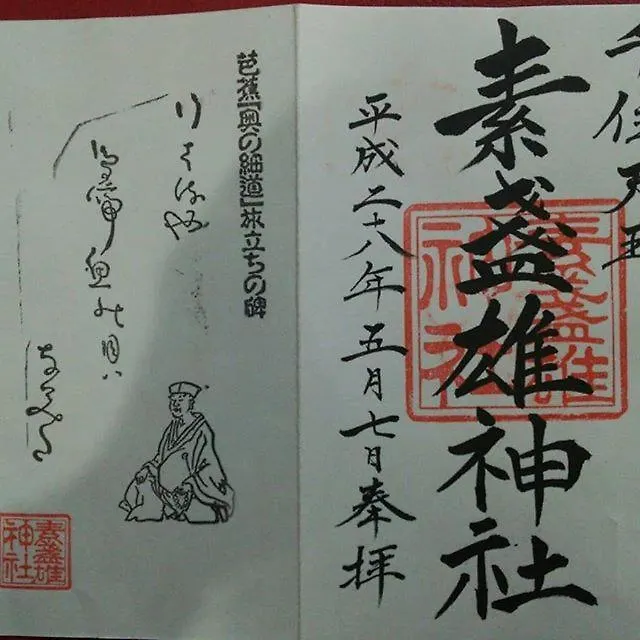 千住天王
素盞雄神社
素盞雄神社
平成二十八年五月七日奉拝
芭蕉『奥の細道』旅立ちの碑
行はるや
鳥啼魚の目ハ
素盞雄神社